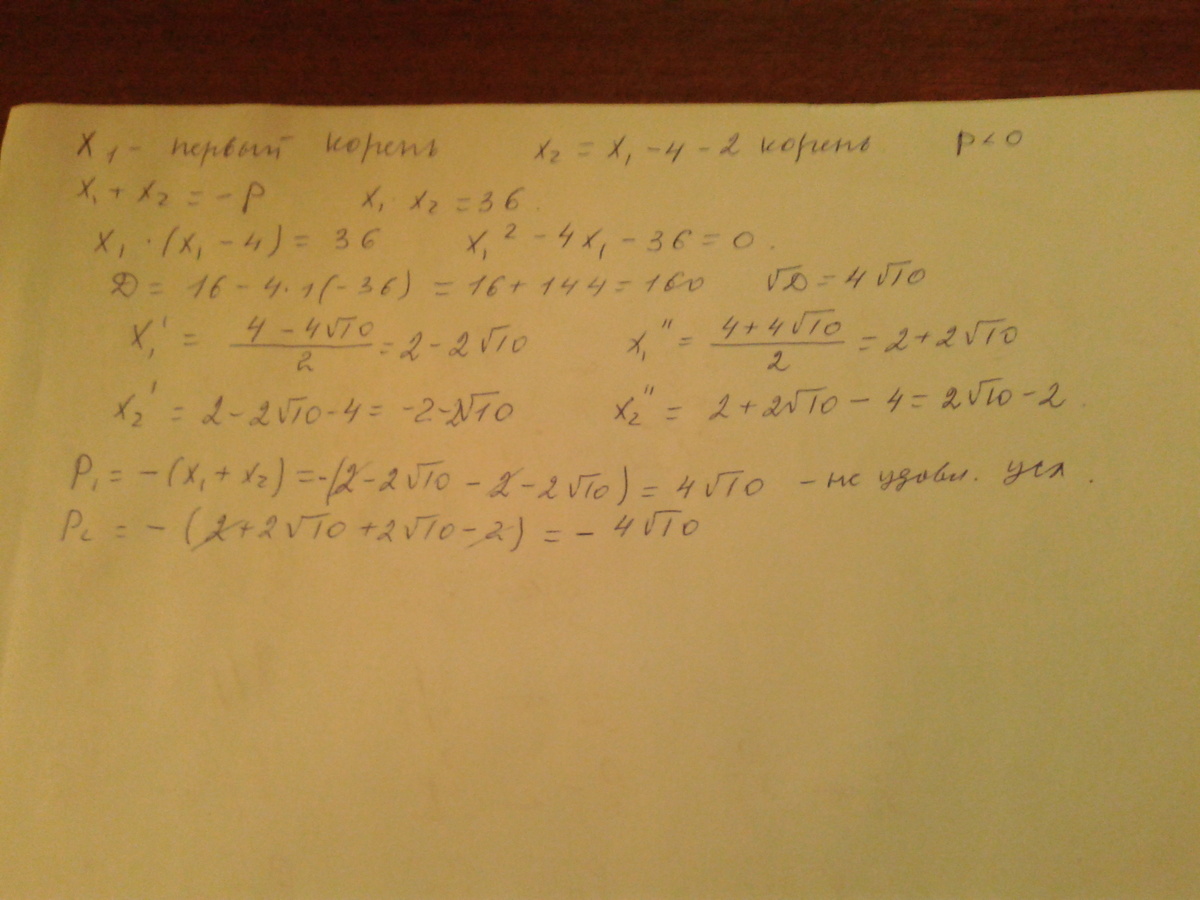 x₁ - первый корень x₂ = x₁ - 4 - 2 корень p < 0
x₁ + x₂ = -p x₁ x₂ = 36.
x₁ · (x₁ - 4) = 36 x₁² - 4x₁ - 36 = 0.
D = 16 - 4·1(-36) = 16 + 144 = 160 √D = 4√10
x₁' = (4 - 4√10)/2 = 2 - 2√10 x₁'' = (4 + 4√10)/2 = 2 + 2√10
x₂' = 2 - 2√10 - 4 = -2 - 2√10 x₂'' = 2 + 2√10 - 4 = 2√10 - 2.
P₁ = -(x₁ + x₂) = -(2 - 2√10 - 2 - 2√10) = 4√10 - не удовл. усл.
P₂ = -(2 + 2√10 + 2√10 - 2) = -4√10